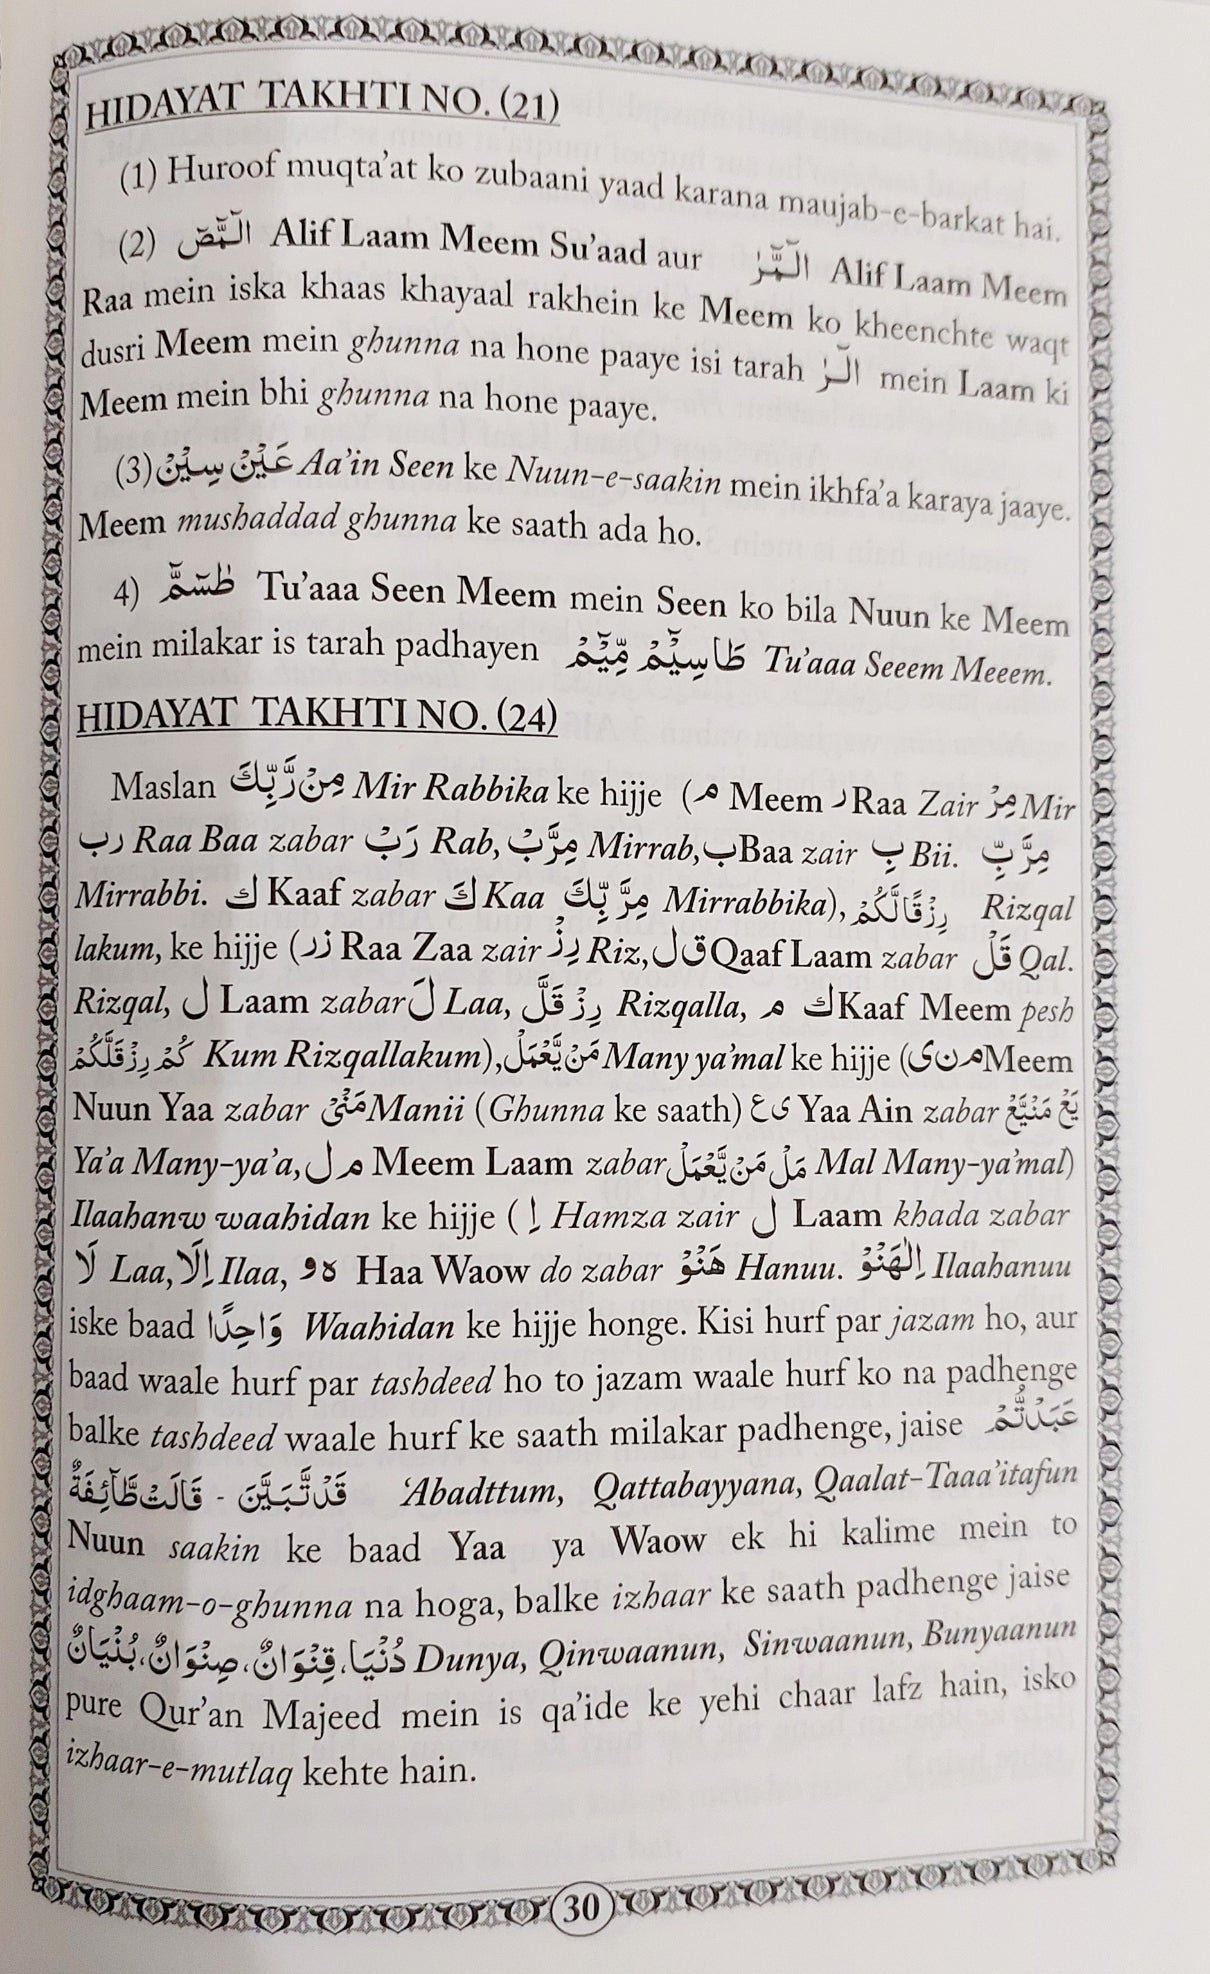 HIDAYAT TAKHTI NO. (21)
(1) Huroof muqta’at ko zubaani yaad karana maujab-e-barkat hai.
(2) الٓمّٓصٓ Alif Laam Meem Su’aad aur الٓمّٓرٰ Alif Laam Meem
Raa mein iska khaas khayaal rakhein ke Meem ko kheenchte waqt
dusri Meem mein ghunna na hone paaye isi tarah الٓرٰ mein Laam ki
Meem mein bhi ghunna na hone paaye.
(3) عَيْنْ سِيْنْ Aa’in Seen ke Nuun-e-saakin mein ikhfa’a karaya jaaye.
Meem mushaddad ghunna ke saath ada ho.
4) طٰسٓمّٓ Tu’aaa Seen Meem mein Seen ko bila Nuun ke Meem
mein milakar is tarah padhayen طَاسِيْٓمْ مِّيْٓمْ Tu’aaa Seeem Meeem.
HIDAYAT TAKHTI NO. (24)
Maslan مِنْ رَّبِّكَ Mir Rabbika ke hijje (م Meem ر Raa Zair مِرْ Mir
رب Raa Baa zabar رَبْ Rab, مِرَّبْ Mirrab, ب Baa zair بِ Bii. مِرَّبِّ
Mirrabbi. ك Kaaf zabar كَ Kaa مِرَّ بِّكَ Mirrabbika), رِزْقًالَّكُمْ Rizqal
lakum, ke hijje (رز Raa Zaa zair رِزْ Riz, ق ل Qaaf Laam zabar قَلْ Qal.
Rizqal, ل Laam zabar لَ Laa, رِزْ قَلَّ Rizqalla, ك م Kaaf Meem pesh
كُمْ رِزْقَلَّكُمْ Kum Rizqallakum), مَنْ يَّعْمَلْ Many ya’mal ke hijje (م ن ى Meem
Nuun Yaa zabar مَنْىْ Manii (Ghunna ke saath) ى ع Yaa Ain zabar يَعْ مَنْيَّعْ
Ya’a Many-ya’a, م ل Meem Laam zabar مَلْ مَنْ يَّعْمَلْ Mal Many-ya’mal)
Ilaahanw waahidan ke hijje ( اِ Hamza zair ل Laam khada zabar
لَا Laa, اِلَا Ilaa, ه و Haa Waow do zabar هَنْوْ Hanuu. اِلٰهَنْوْ Ilaahanuu
iske baad وَاحِدًا Waahidan ke hijje honge. Kisi hurf par jazam ho, aur
baad waale hurf par tashdeed ho to jazam waale hurf ko na padhenge
balke tashdeed waale hurf ke saath milakar padhenge, jaise عَبَدْتُّمْ
قَدْ تَّبَيَّنَ - قَالَتْ طَّآئِفَةٌ ‘Abadttum, Qattabayyana, Qaalat-Taaa’itafun
Nuun saakin ke baad Yaa ya Waow ek hi kalime mein to
idghaam-o-ghunna na hoga, balke izhaar ke saath padhenge jaise
دُنْيَا، قِنْوَانٌ، صِنْوَانٌ، بُنْيَانٌ Dunya, Qinwaanun, Sinwaanun, Bunyaanun
pure Qur’an Majeed mein is qa’ide ke yehi chaar lafz hain, isko
izhaar-e-mutlaq kehte hain.
30